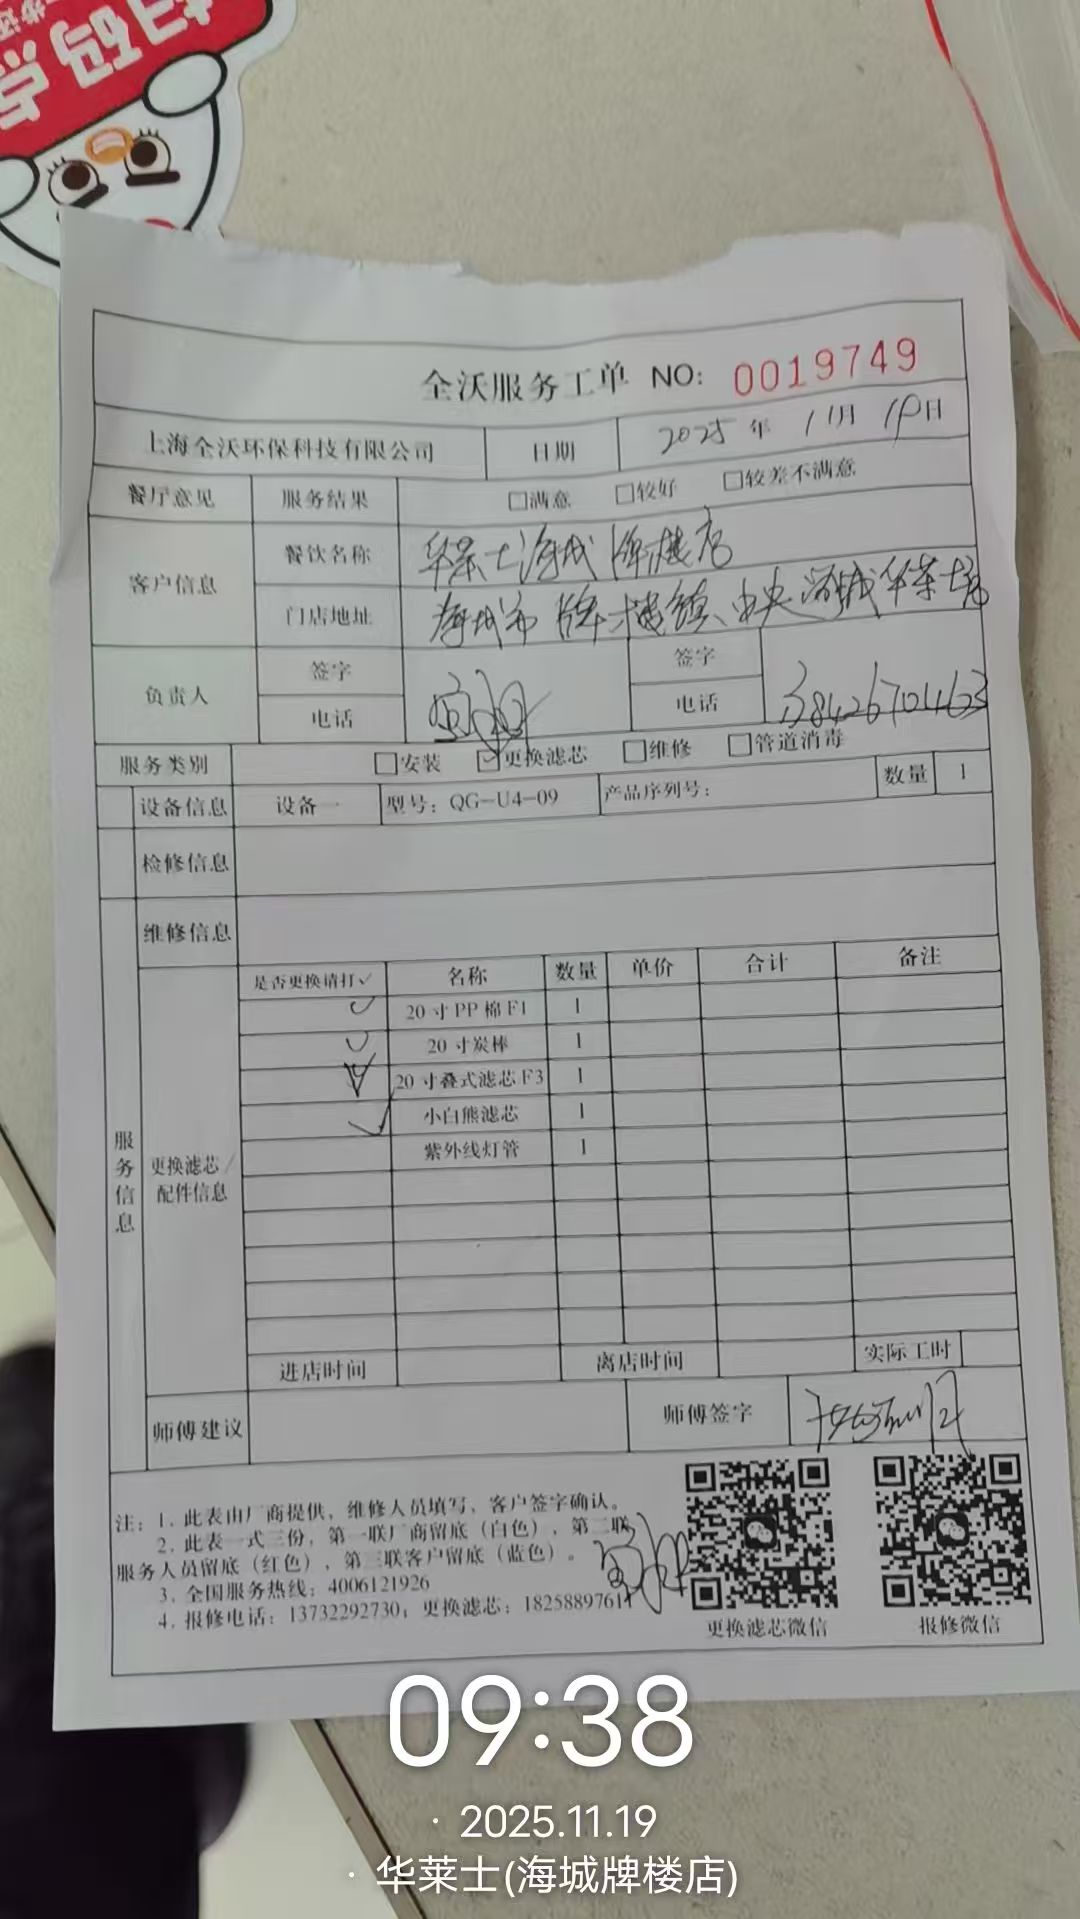 扫码点
全沃服务工单 NO: 0019749
上海全沃环保科技有限公司 日期 2025年 11月 19日
餐厅意见 服务结果 □满意 □较好 □较差不满意
客户信息 餐饮名称 华莱士海城牌楼店
门店地址 海城市牌楼镇中央海城华莱士
负责人 签字 签字
电话 电话 13842670463
服务类别 □安装 ☑更换滤芯 □维修 □管道消毒
设备信息 设备一 型号：QG-U4-09 产品序列号： 数量 1
检修信息
维修信息
是否更换请打✓ 名称 数量 单价 合计 备注
✓ 20寸PP棉F1 1
✓ 20寸炭棒 1
✓ 20寸叠式滤芯F3 1
✓ 小白熊滤芯 1
紫外线灯管 1
服务信息
更换滤芯/
配件信息
进店时间 离店时间 实际工时
师傅建议 师傅签字
注：1. 此表由厂商提供，维修人员填写，客户签字确认。
2. 此表一式三份，第一联厂商留底（白色），第二联
服务人员留底（红色），第三联客户留底（蓝色）。
3. 全国服务热线：4006121926
4. 报修电话：13732292730；更换滤芯：18258897611
更换滤芯微信 报修微信
09:38
· 2025.11.19
· 华莱士(海城牌楼店)